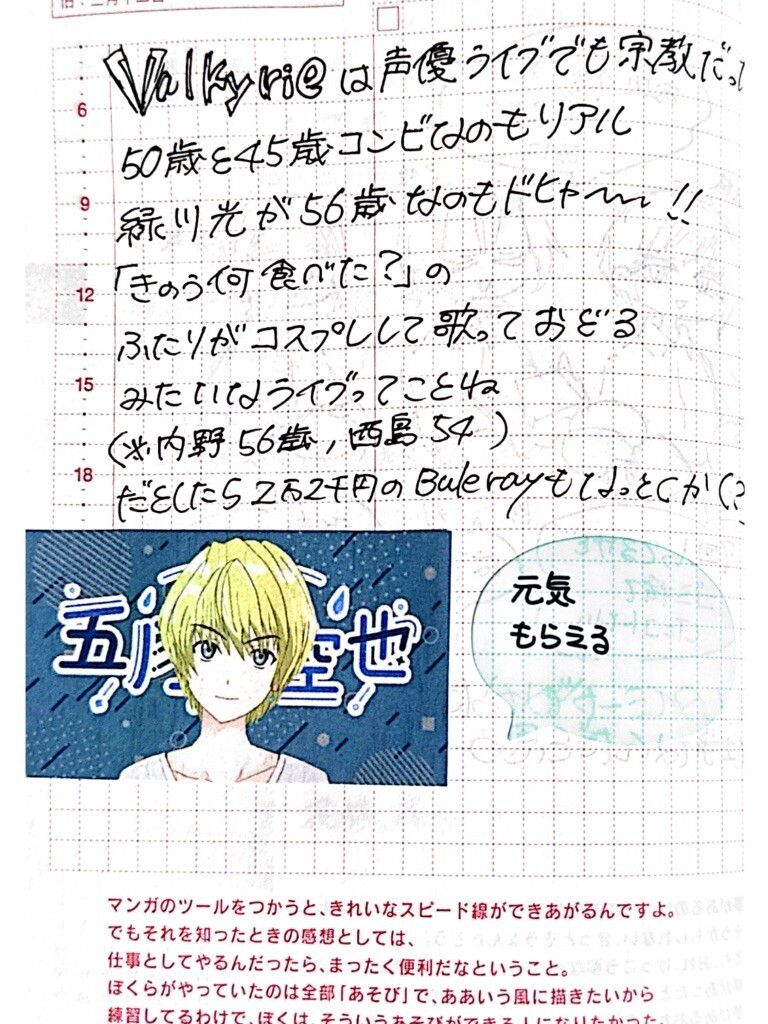 Valkyrieは声優ライブでも宗教だっ
50歳と45歳コンビなのもリアル
緑川光が56歳なのもドヒャ〜!!
「きのう何食べた?」の
ふたりがコスプレして歌っておどる
みたいなライブってことね
(※内野56歳,西島54)
だとしたら2万2千円のBulerayもなっとくか(?
6
9
12
15
18
五 空也
元気
もらえる
マンガのツールをつかうと、きれいなスピード線ができあがるんですよ。
でもそれを知ったときの感想としては、
仕事としてやるんだったら、まったく便利だなということ。
ぼくらがやっていたのは全部「あそび」で、ああいう風に描きたいから
練習してるわけで、ぼくは、そういうあそびができる人になりたかった。